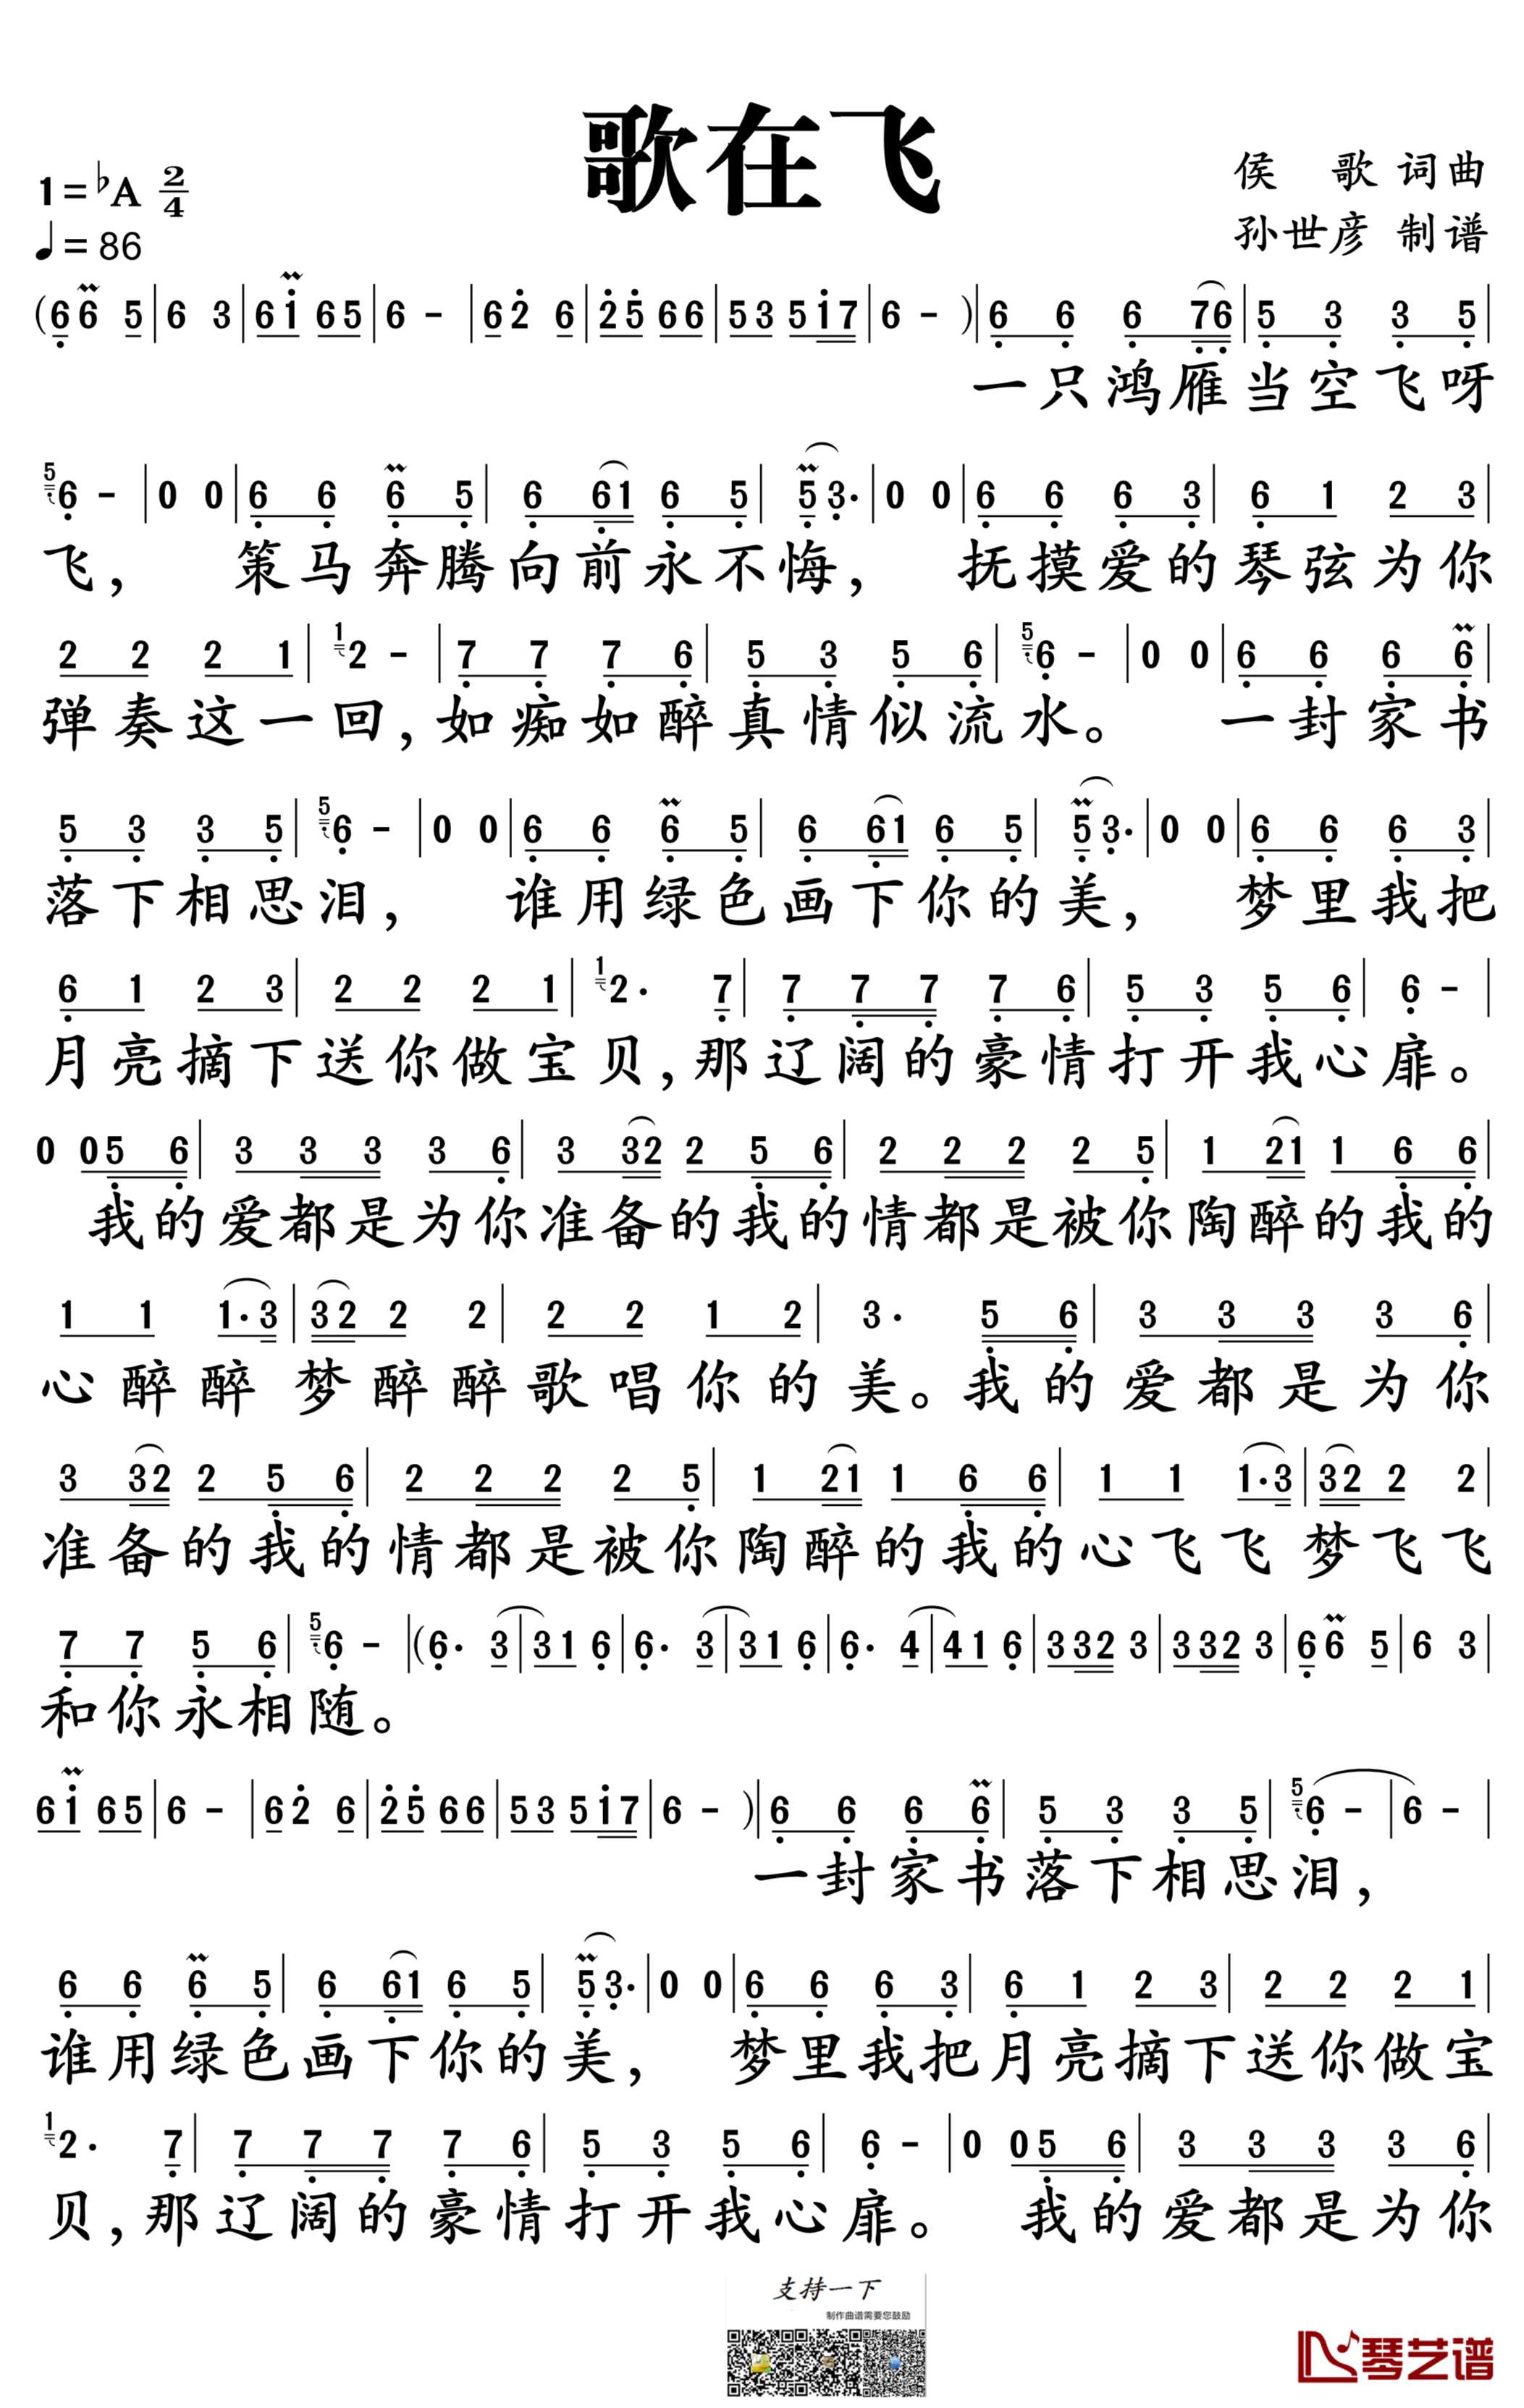 歌在飞
1=♭A 2/4
♩=86
侯 歌 词曲
孙世彦 制谱
(6 6 5|6 3|6 1 6 5|6 -|6 2 6|2 5 6 6|5 3 5 1 7|6 - )|6 6 6 7 6|5 3 3 5|
一只鸿雁当空飞呀
5 6 -|0 0|6 6 6 5|6 6 1 6 5|5 3·|0 0|6 6 6 3|6 1 2 3|
飞， 策马奔腾向前永不悔， 抚摸爱的琴弦为你
2 2 2 1|1 2 -|7 7 7 6|5 3 5 6|5 6 -|0 0|6 6 6 6|
弹奏这一回，如痴如醉真情似流水。 一封家书
5 3 3 5|5 6 -|0 0|6 6 6 5|6 6 1 6 5|5 3·|0 0|6 6 6 3|
落下相思泪， 谁用绿色画下你的美， 梦里我把
6 1 2 3|2 2 2 1|1 2· 7|7 7 7 7 6|5 3 5 6|6 -|
月亮摘下送你做宝贝，那辽阔的豪情打开我心扉。
0 0 5 6|3 3 3 3 6|3 3 2 2 5 6|2 2 2 2 5|1 2 1 1 6 6|
我的爱都是为你准备的我的情都是被你陶醉的我的
1 1 1·3|3 2 2 2|2 2 1 2|3· 5 6|3 3 3 3 6|
心醉醉 梦醉醉歌唱你的美。我的爱都是为你
3 3 2 2 5 6|2 2 2 2 5|1 2 1 1 6 6|1 1 1·3|3 2 2 2|
准备的我的情都是被你陶醉的我的心飞飞 梦飞飞
7 7 5 6|5 6 -|(6· 3|3 1 6|6· 3|3 1 6|6· 4|4 1 6|3 3 2 3|3 3 2 3|6 6 5|6 3|
和你永相随。
6 1 6 5|6 -|6 2 6|2 5 6 6|5 3 5 1 7|6 - )|6 6 6 6|5 3 3 5|5 6 -|6 -|
一封家书落下相思泪，
6 6 6 5|6 6 1 6 5|5 3·|0 0|6 6 6 3|6 1 2 3|2 2 2 1|
谁用绿色画下你的美， 梦里我把月亮摘下送你做宝
1 2· 7|7 7 7 7 6|5 3 5 6|6 -|0 0 5 6|3 3 3 3 6|
贝，那辽阔的豪情打开我心扉。 我的爱都是为你
支持一下
制作曲谱需要您鼓励
琴艺谱